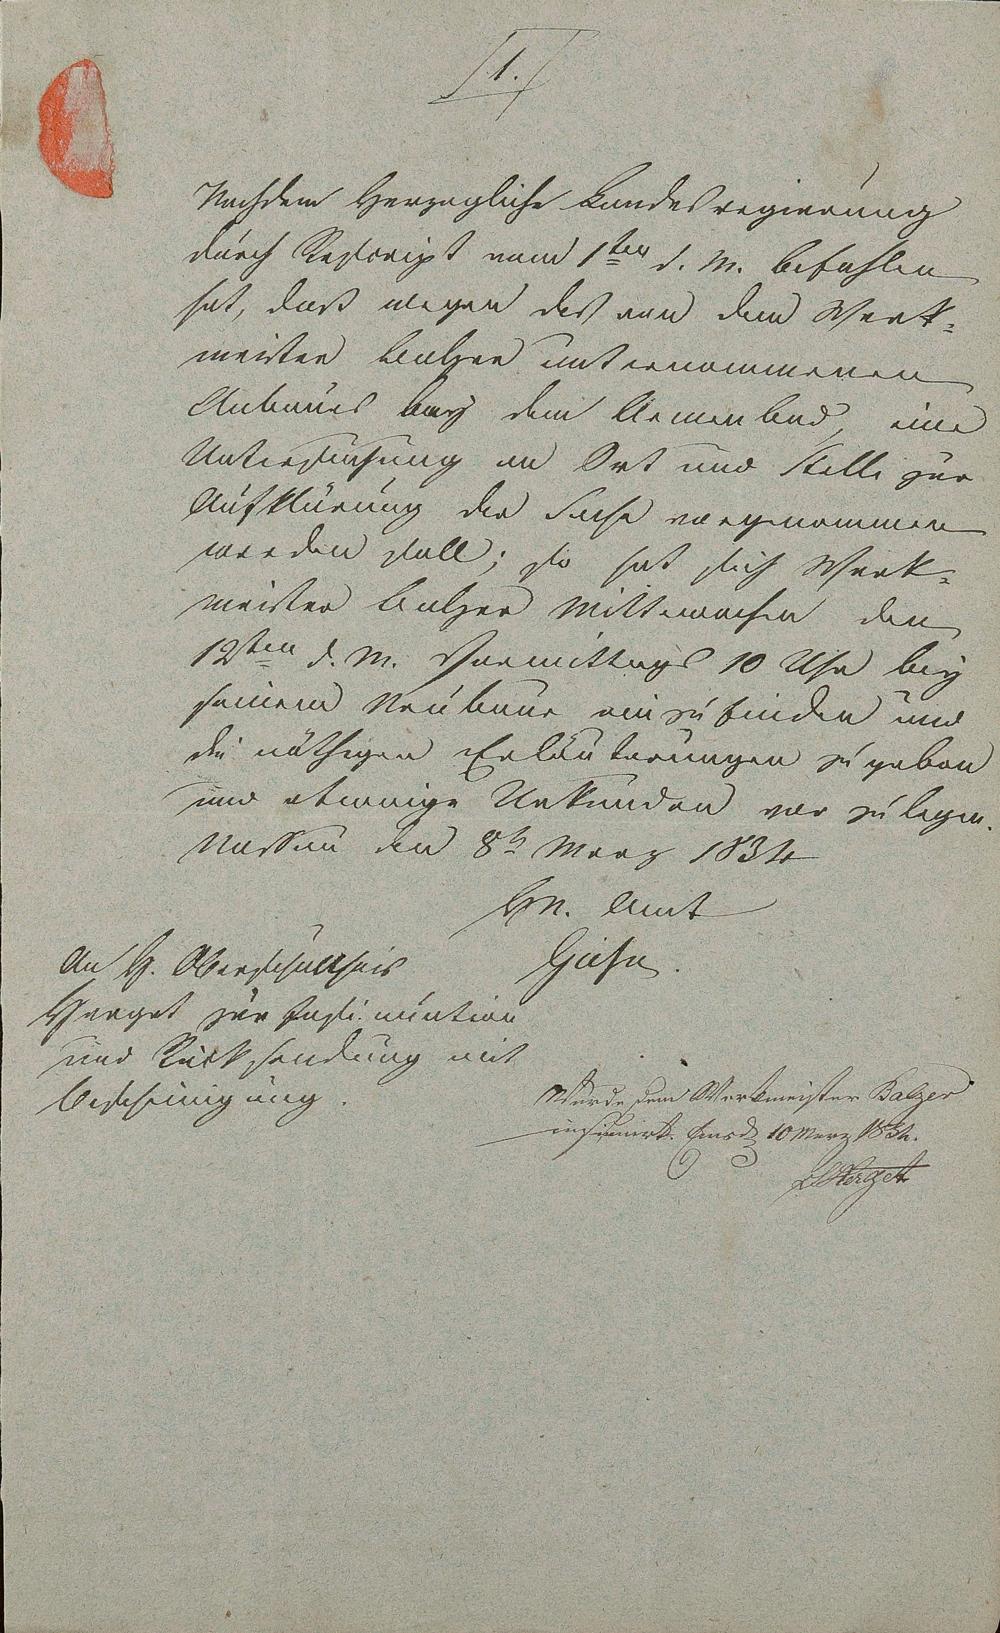 1.
Nachdem Herzogliche Landesregierung
durch Rescript vom 1ten d. M. befohlen
hat, daß wegen des von dem Werk-
meister Balzer unternommenen
Anbaues bey dem Armenbad, eine
Untersuchung an Ort und Stelle zur
Aufklärung der Sache vorgenommen
werden soll; so hat sich Werk-
meister Balzer Mittwochen den
12ten d. M. Vormittags 10 Uhr bey
seinem Neubaue einzufinden und
die nöthigen Erläuterungen zu geben
und etwaige Urkunden vor zu legen.
Nassau den 8t Merz 1834
HN. Amt
An H. Oberschultheis
Herget zur Insinuation
und Rücksendung mit
Bescheinigung.
Wurde dem Werkmeister Balzer
insinuirt. Ems d 10 Merz 1834.
Herget